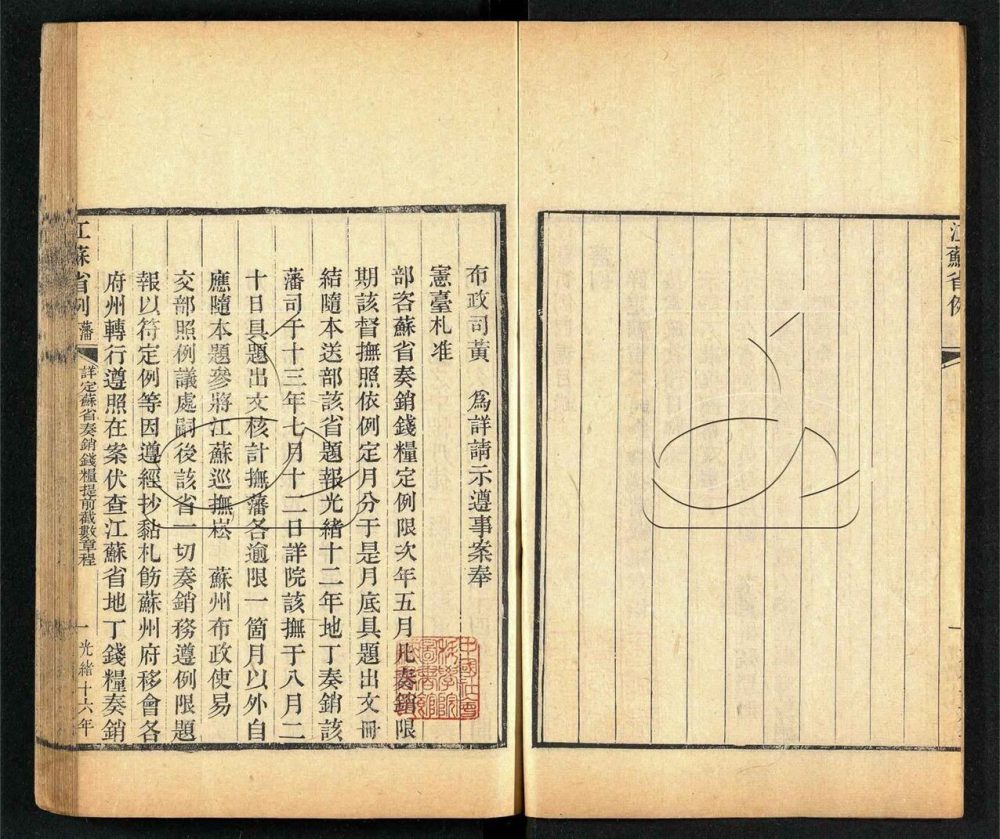 江蘇省例
布政司黃　為詳請示遵事案奉
憲臺札准
部咨蘇省奏銷錢糧定例限次年五月凡奏銷限
期該督撫照依例定月分于是月底具題出文冊
結隨本送部該省題報光緒十二年地丁奏銷該
藩司于十三年七月十二日詳院該撫于八月二
十日具題出文核計撫藩各逾限一箇月以外自
應隨本題參將江蘇巡撫崧　蘇州布政使易
交部照例議處嗣後該省一切奏銷務遵例限題
報以符定例等因遵經抄黏札飭蘇州府移會各
府州轉行遵照在案伏查江蘇省地丁錢糧奏銷
江蘇省例　藩　詳定蘇省奏銷錢糧提前截數章程　一　光緒十六年